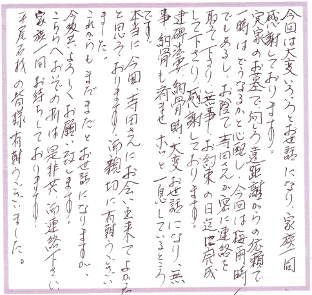 今回は大変いろいろとお世話になり、家族一同
感謝しております。
実家のお墓で、何しろ遠距離からの依頼で
一時はどうなるか心配し、今回は梅雨時
でもあるし、お陰で寺田さんが密に連絡を
取って下さり、無事、お約束の日迄に完成
して下さり、感謝しております。
建碑法要、納骨時、大変お世話になり、無
事納骨も済ませ、ホッと一息しているところ
です。
本当に今回、寺田さんにお会い出来てよかった
と思っております。御親切に有難うござい
ました。
これからもまだまだとお世話になりますが、
今後共よろしくお願い致します。
こちらへおいでの折は是非共御連絡下さい。
家族一同お待ちしております。
平尾石材の皆様有難うございました。